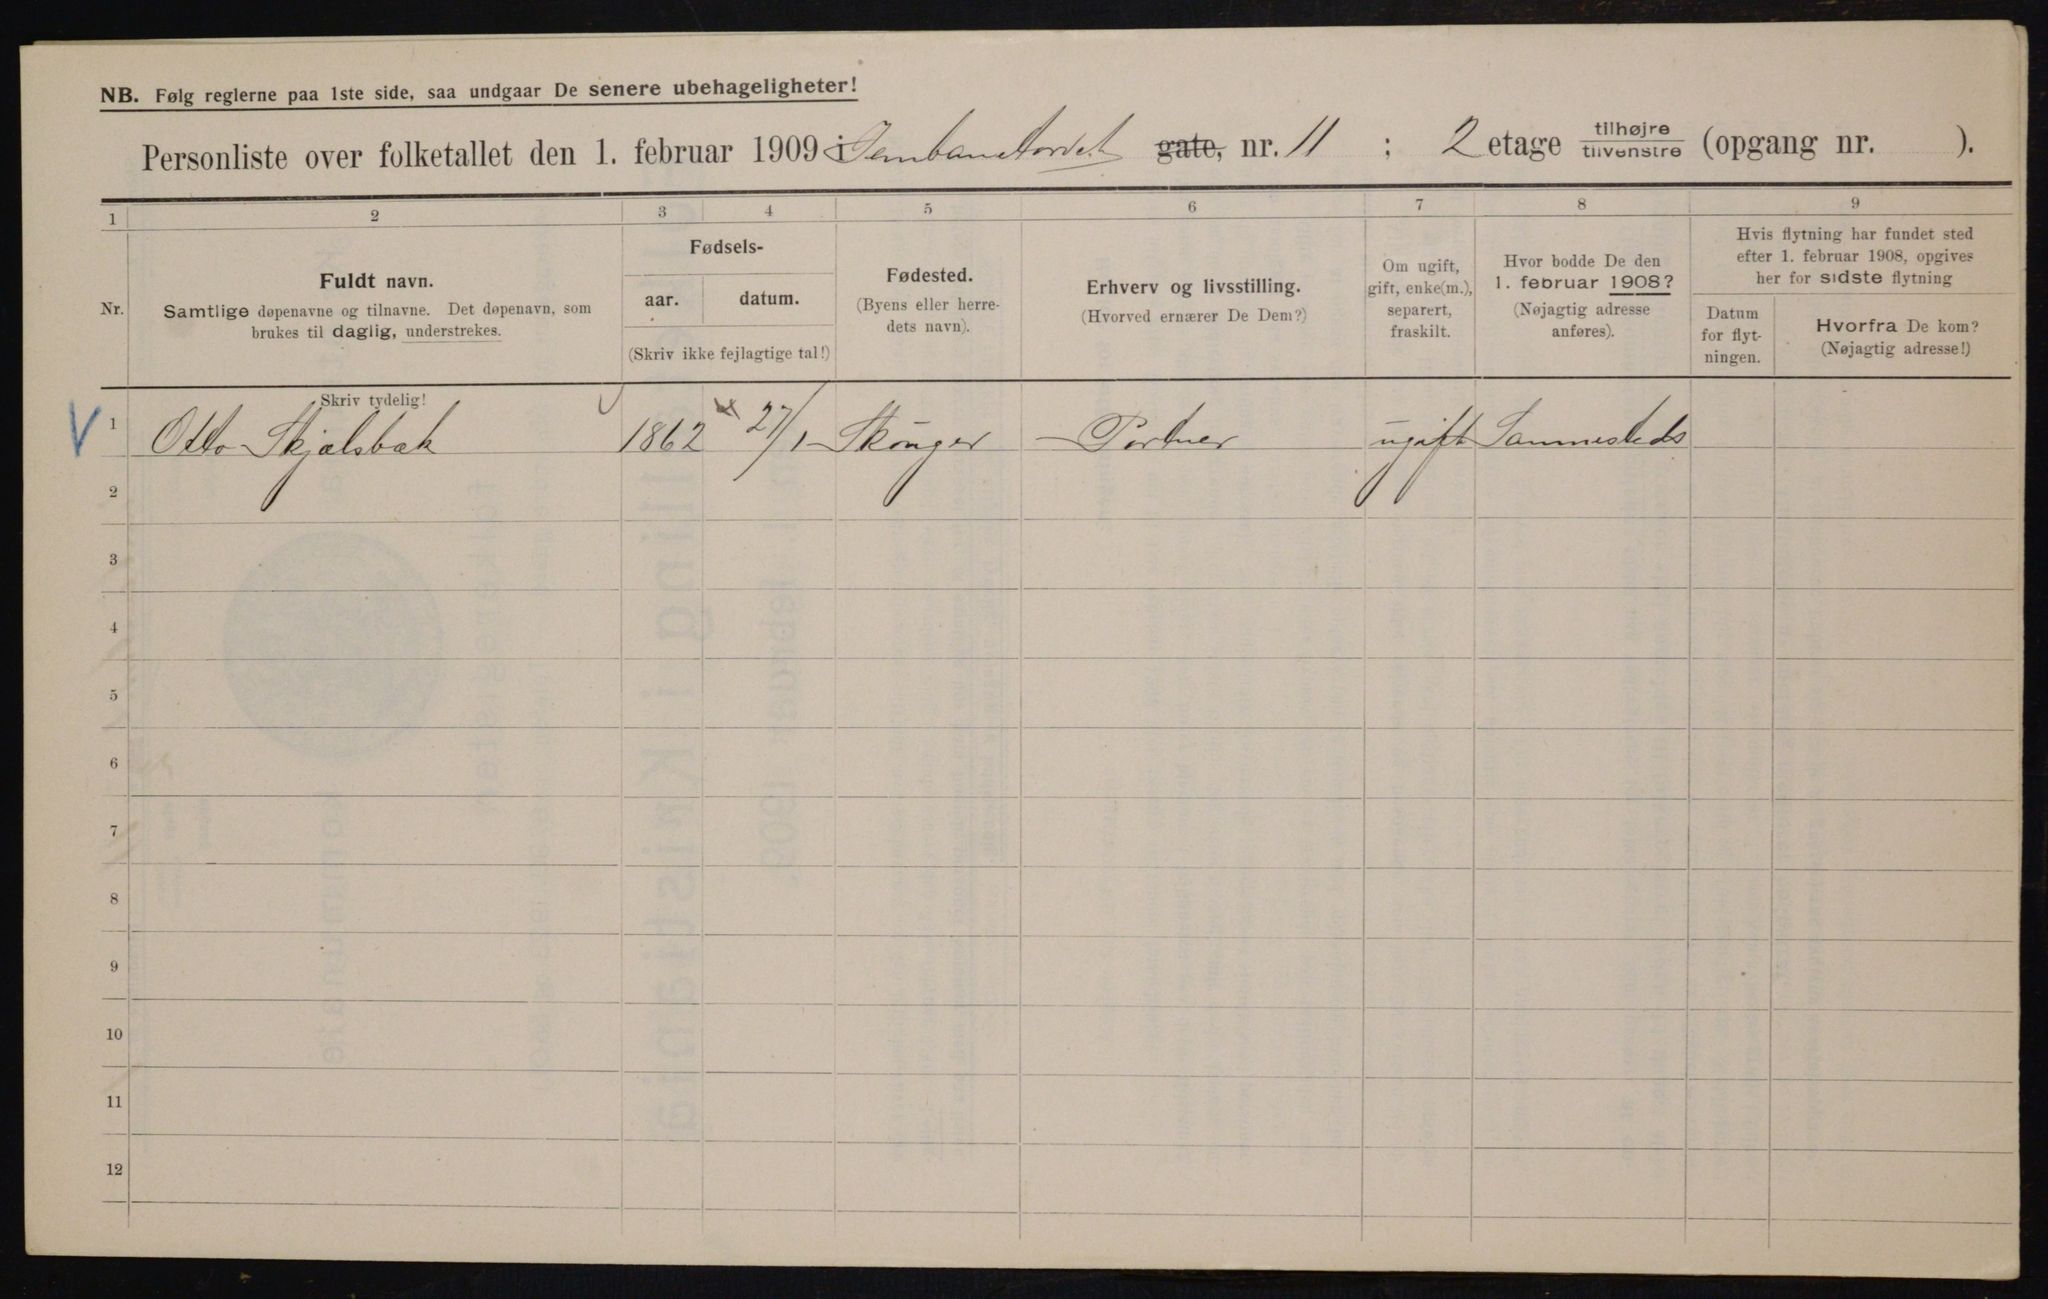 NB. Følg reglerne paa 1ste side, saa undgaar De senere ubehageligheter!
Personliste over folketallet den 1. februar 1909 i Jernbanetorvet gate, nr. 11 ; 2 etage tilhøjre / tilvenstre (opgang nr. ).
1 2 3 4 5 6 7 8 9
Nr.
Fuldt navn.
Samtlige døpenavne og tilnavne. Det døpenavn, som
brukes til daglig, understrekes.
Fødsels-
aar. datum.
(Skriv ikke fejlagtige tal!)
Fødested.
(Byens eller herre-
dets navn).
Erhverv og livsstilling.
(Hvorved ernærer De Dem?)
Om ugift,
gift, enke(m.),
separert,
fraskilt.
Hvor bodde De den
1. februar 1908?
(Nøjagtig adresse
anføres).
Hvis flytning har fundet sted
efter 1. februar 1908, opgives
her for sidste flytning
Datum
for flyt-
ningen.
Hvorfra De kom?
(Nøjagtig adresse!)
Skriv tydelig!
V 1 Otto Skjælsbæk 1862 27/1 Skånger Portner ugift Sammesteds
2
3
4
5
6
7
8
9
10
11
12